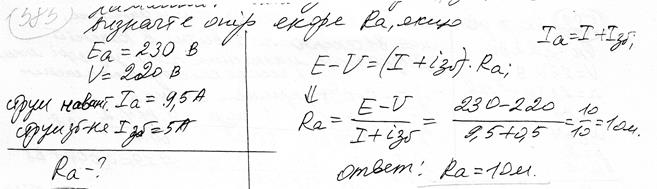 1385)
визначте опір якоря Rа, якщо
Eа = 230 В
V = 220 В
струм навант. Iа = 9,5 А
струм зб-не Iзб = 5А
Rа - ?
Iа = I + Iзб;
E - V = (I + iзб) · Rа;
⇓
Rа = E - V / I + iзб = 230 - 220 / 9,5 + 0,5 = 10 / 10 = 1 Ом.
ответ: Rа = 1 Ом.